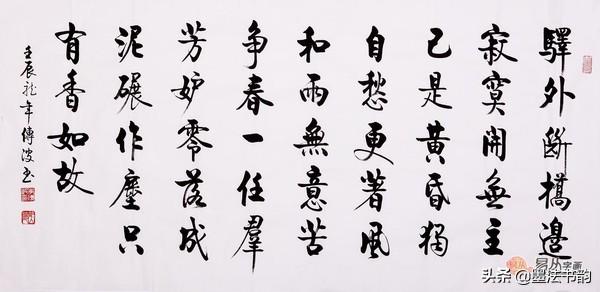 驛外斷橋邊
寂寞開無主
已是黃昏獨
自愁更著風
和雨無意苦
争春一任羣
芳妒零落成
泥碾作塵只
有香如故
壬辰龍年傳波书
头条 @墨法书韵